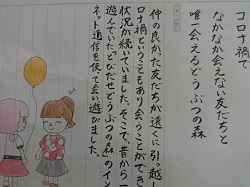 コロナ禍で
なかなか会えない友だちと
唯一会えるどうぶつの森
仲の良かった友だちが遠くに引っ越し
ロナ禍ということもあり会うことができ
状況が続いていました。そこで、昔から一
遊んでいた「とびだせどうぶつの森」のイン
ネット通信を使って会い遊びました。